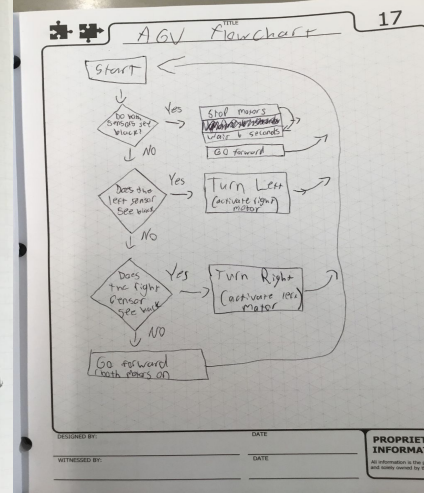 TITLE
17
AGV flowchart
Start
Do both
sensors see
black?
Yes
Stop motors
Wait 6 seconds
GO forward
NO
Does the
left sensor
see black
Yes
Turn Left
(activate right)
motor
NO
Does
the right
sensor
see black
Yes
Turn Right
(activate left)
motor
NO
Go forward
(both motors on
DESIGNED BY:
DATE
WITNESSED BY:
DATE
PROPRIET
INFORMA
All information is the p
and solely owned by t